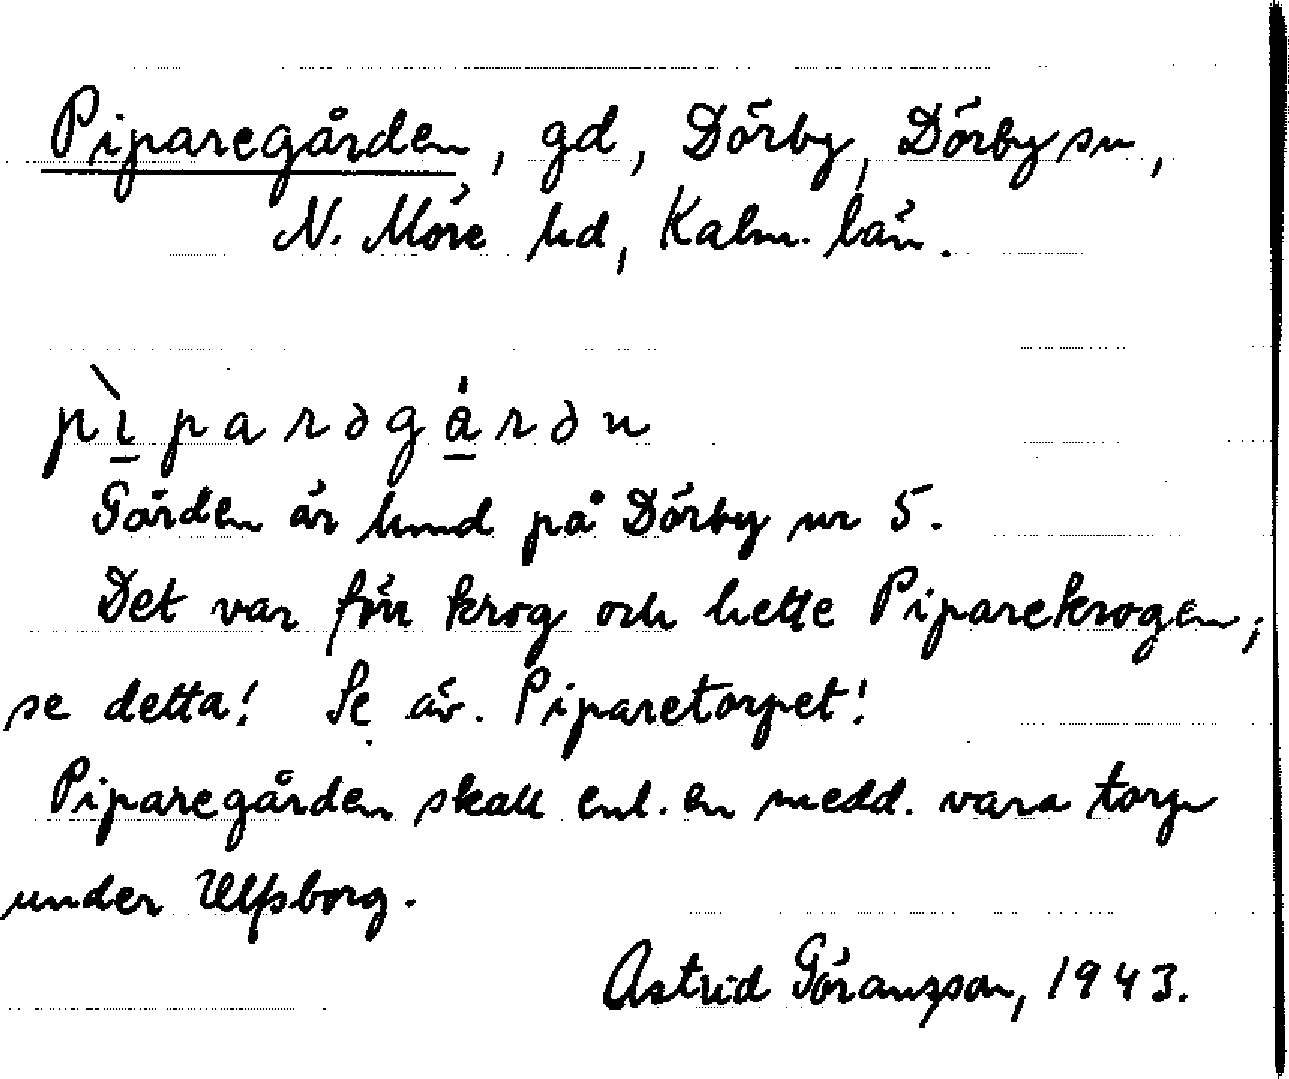 Piparegården, gd, Dörby, Dörby sn,
N. Möre hd, Kalm. län.
pìparəgårən
Gården är känd på Dörby nr 5.
Det var förr krog och hette Piparekrogen,
se detta! Se äv. Piparetorpet!
Piparegården skall enl. en medd. vara torp
under Ulfsborg.
Astrid Göransson, 1943.